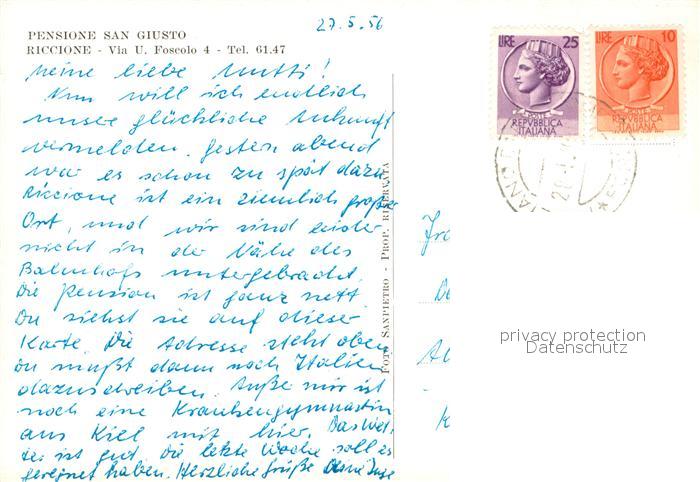 27.5.56
PENSIONE SAN GIUSTO
RICCIONE - Via U. Foscolo 4 - Tel. 61.47
Meine liebe Mutti!
Nun will ich endlich
unsre glückliche Ankunft
vermelden. Gestern abend
war es schon zu spät dazu
Riccione ist ein ziemlich großer
Ort, und wir sind leider
nicht in der Nähe des
Bahnhofs untergebracht.
Die Pension ist ganz nett.
Du siehst sie auf dieser
Karte. Die Adresse steht oben
du mußt dann noch Italien
dazuschreiben. Außer mir ist
noch eine Krankengymnastin
aus Kiel mit hier. Das Wet-
ter ist gut, die letzte Woche soll es
geregnet haben. Herzliche Grüße Deine Inge
Foto SANPIETRO - PROP. RISERVATA
LIRE 25
POSTE
REPVBBLICA
ITALIANA
LIRE 10
POSTE
REPVBBLICA
ITALIANA
privacy protection
Datenschutz